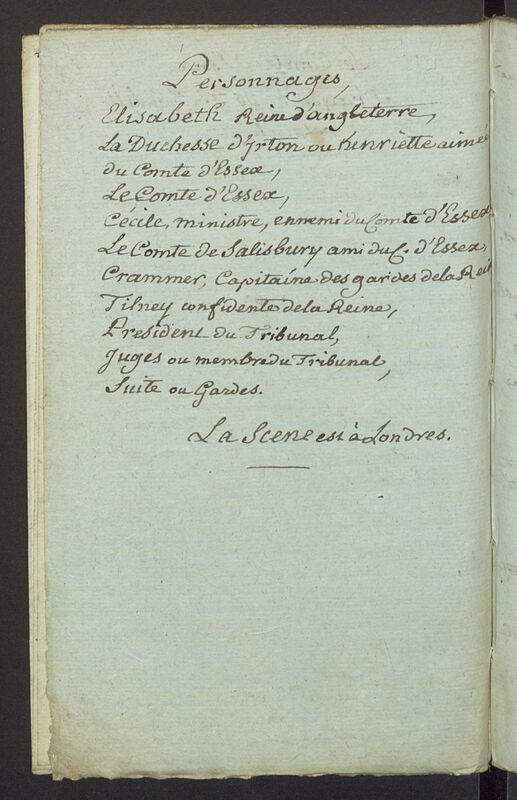 Personnages,
Elisabeth Reine d'angleterre,
La Duchesse d'Irton ou henriette aimée
du Comte d'Essex,
Le Comte d'Essex,
Cécile, ministre, ennemi du Comte d'Essex
Le Comte de Salisbury ami du C. d'Essex,
Crammer, Capitaine des gardes de la Rei
Tilney confidente de la Reine,
President du Tribunal,
Juges ou membre du Tribunal,
Suite ou Gardes.
La Scene est à Londres.